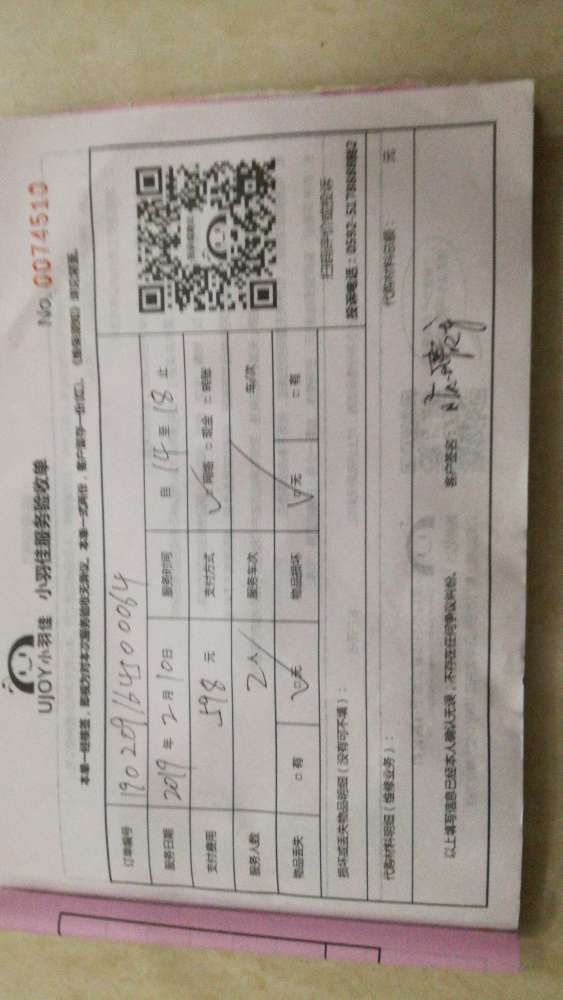 No. 0074510
UJOY小羽佳 小羽佳服务验收单
本单一经签签，即视为对本次服务验收无异议。本单一式两份，客户留存一份（红）。
订单编号 190209164500064
服务日期 2019 年 2 月 10 日 服务时间 自 14 至 18 止
支付费用 598 元 支付方式 ☑网络 □现金 □转账
服务人数 2 人 服务车次 车/次
物品丢失 □有 ☑无 物品损坏 ☑无 □有
扫码评价或投诉
损坏或丢失物品明细（没有可不填）：
代购材料明细（维修业务）： 代购材料总额： 元
以上填写信息已经本人确认无误，不存在任何争议纠纷。 客户签名：